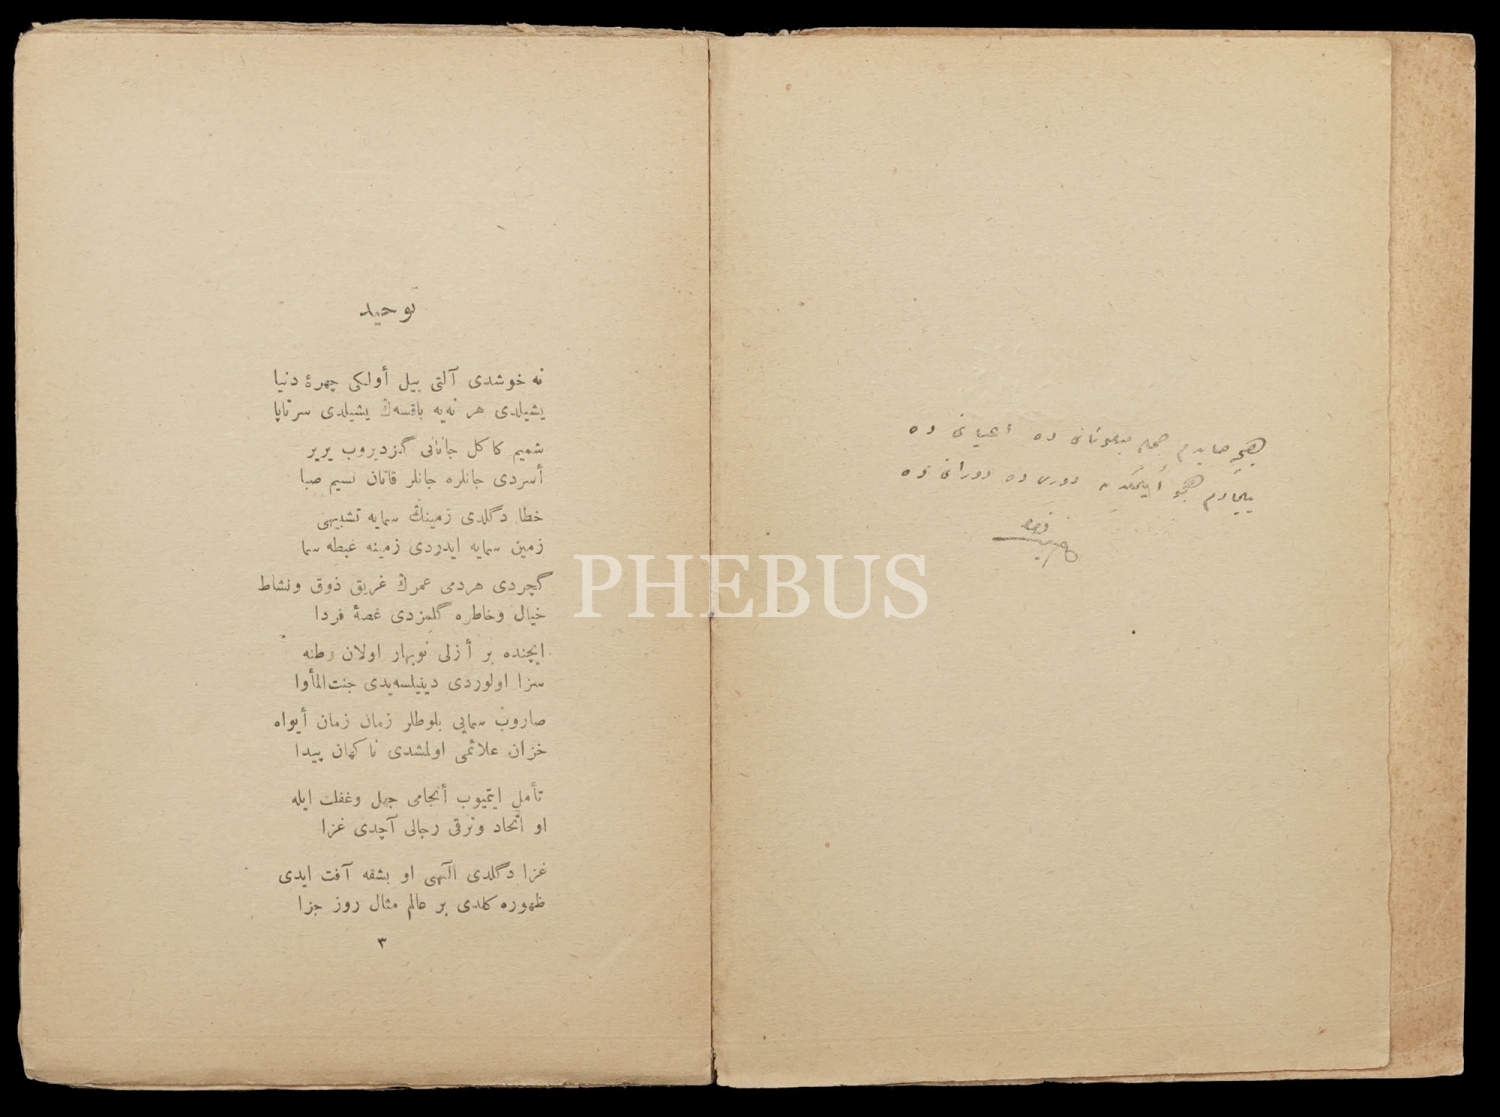 هیچه صایدم جمله مبعوثانی ده اعیانی ده
هجو
دوری ده دورانی ده
توحید
نه خوشدی آلتی ییل أولکی چهرهٔ دنیا
یشیلدی هر نه‌یه باقسه‌ڭ یشیلدی سرتاپا
شمیم کاکل جانانی گزدیروب یریر
أسردی جانلره جانلر قاتان نسیم صبا
خطا دگلدی زمینڭ سمایه تشبیهی
زمین سمایه ایدردی زمینه غبطه سما
گچردی هردمی عمرڭ غریق ذوق ونشاط
خیال وخاطره گلمزدی غصهٔ فردا
ایچنده بر أزلی نوبهار اولان وطنه
سزا اولوردی دینیلسه‌یدی جنت‌المأوا
صاروب سمایی بلوطلر زمان زمان أیواه
خزان علائمی اولمشدی ناکهان پیدا
تأمل ایتمیوب أنجامی جهل وغفلت ایله
او اتحاد وترقی رجالی آچدی غزا
غزا دگلدی الٓهی او بشقه آفت ایدی
ظهوره کلدی بر عالم مثال روز جزا
٣
PHEBUS